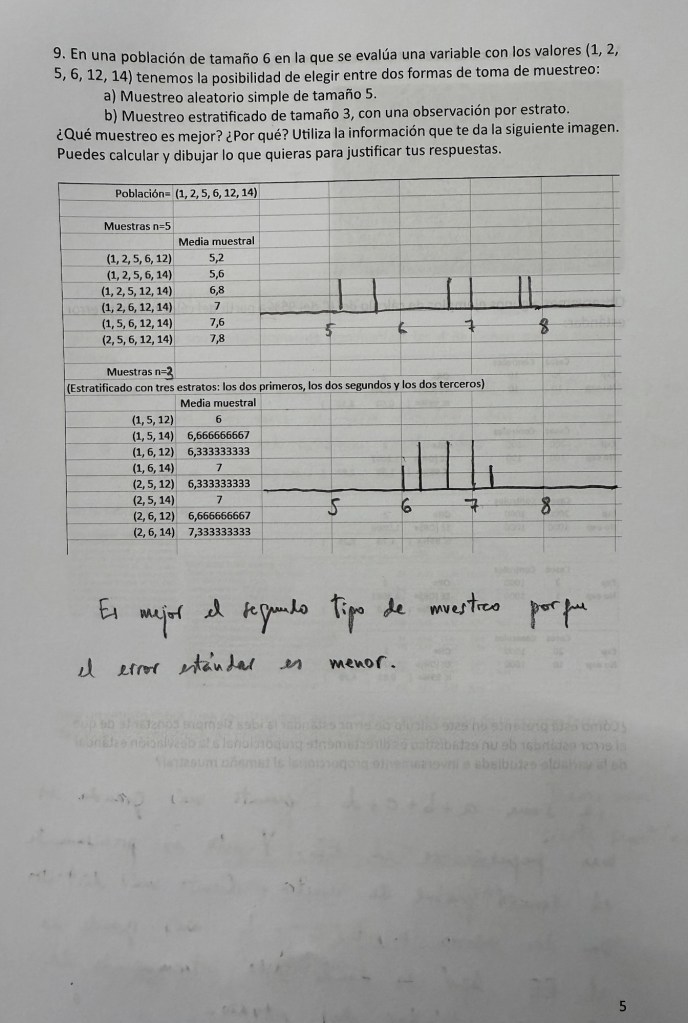 9. En una población de tamaño 6 en la que se evalúa una variable con los valores (1, 2,
5, 6, 12, 14) tenemos la posibilidad de elegir entre dos formas de toma de muestreo:
a) Muestreo aleatorio simple de tamaño 5.
b) Muestreo estratificado de tamaño 3, con una observación por estrato.
¿Qué muestreo es mejor? ¿Por qué? Utiliza la información que te da la siguiente imagen.
Puedes calcular y dibujar lo que quieras para justificar tus respuestas.
Población= (1, 2, 5, 6, 12, 14)
Muestras n=5
Media muestral
(1, 2, 5, 6, 12) 5,2
(1, 2, 5, 6, 14) 5,6
(1, 2, 5, 12, 14) 6,8
(1, 2, 6, 12, 14) 7
(1, 5, 6, 12, 14) 7,6
(2, 5, 6, 12, 14) 7,8
5 6 7 8
Muestras n=3
(Estratificado con tres estratos: los dos primeros, los dos segundos y los dos terceros)
Media muestral
(1, 5, 12) 6
(1, 5, 14) 6,666666667
(1, 6, 12) 6,333333333
(1, 6, 14) 7
(2, 5, 12) 6,333333333
(2, 5, 14) 7
(2, 6, 12) 6,666666667
(2, 6, 14) 7,333333333
5 6 7 8
Es mejor el segundo tipo de muestreo porque
el error estándar es menor.
5